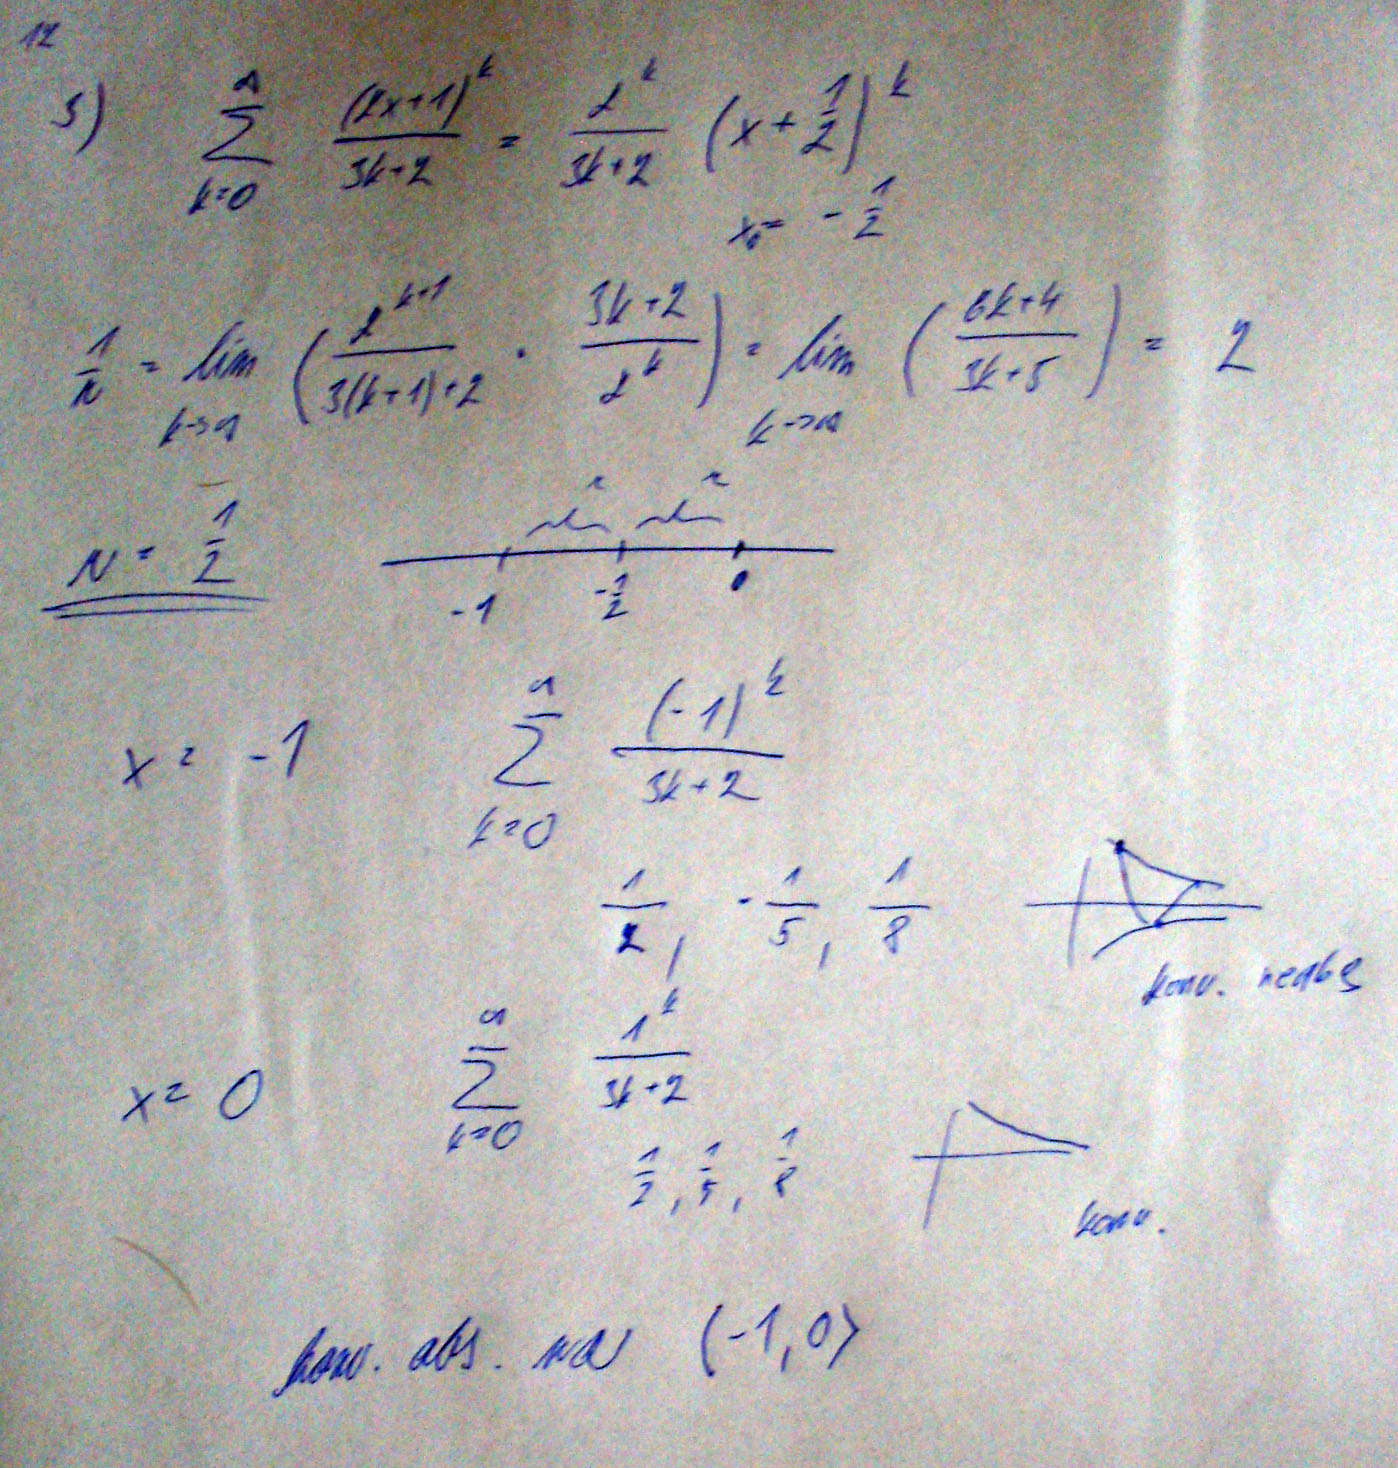 12
5) ∑_{k=0}^{∞} (2x+1)^k / (3k+2) = 2^k / (3k+2) (x + 1/2)^k
x₀ = -1/2
1/r = lim_{k→∞} ( 2^{k+1} / (3(k+1)+2) · (3k+2) / 2^k ) = lim_{k→∞} ( (6k+4) / (3k+5) ) = 2
r r
r = 1/2
-1 -1/2 0
x = -1 ∑_{k=0}^{∞} (-1)^k / (3k+2)
1/2, -1/5, 1/8
konv. neabs
x = 0 ∑_{k=0}^{∞} 1^k / (3k+2)
1/2, 1/5, 1/8
konv.
konv. abs. na (-1, 0⟩